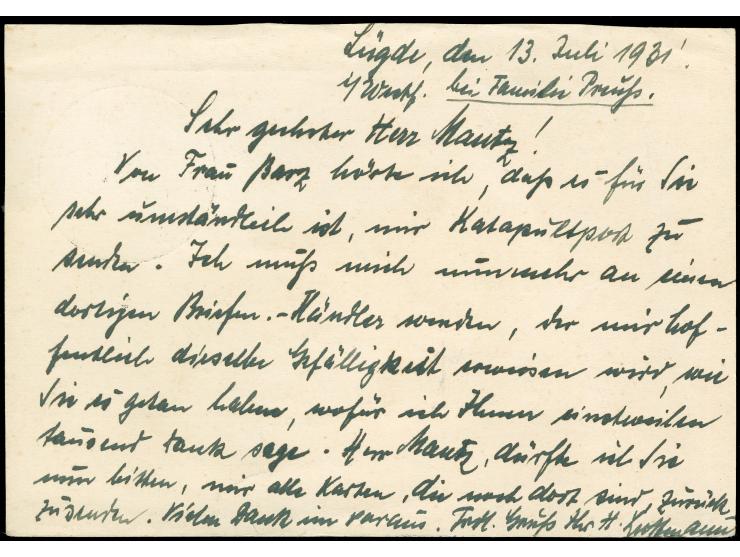 Lügde, den 13. Juli 1931!
i/Westf. bei Familie Preuß.
Sehr geehrter Herr Mautz!
Von Frau Barz hörte ich, daß es für Sie
sehr umständlich ist, mir Katapultpost zu
senden. Ich muß mich nunmehr an einen
dortigen Briefm.-Händler wenden, der mir hof-
fentlich dieselbe Gefälligkeit erweisen wird, wie
Sie es getan haben, wofür ich Ihnen einstweilen
tausend Dank sage. Herr Mautz, dürfte ich Sie
nun bitten, mir alle Karten, die noch dort sind, zurück
zusenden. Vielen Dank im voraus. Frdl. Gruß Ihr H.